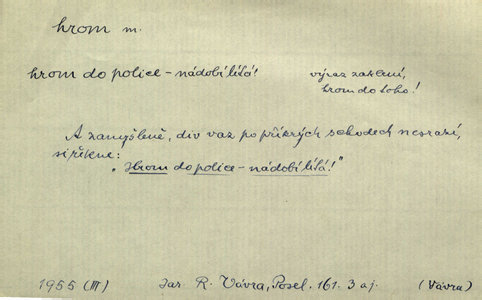 hrom m.
hrom do police – nádobí lítá! výraz zaklení,
hrom do toho!
A zamyšleně, div vaz po příkrých schodech nesrazí,
si řekne:
„Hrom do police – nádobí lítá!"
1955 (III) Jar. R. Vávra, Posel, 161. 3 aj. (Vávra)